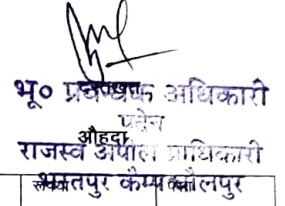 भू० प्रबन्धक अधिकारी
पदेन
औहदा
राजस्व अपील प्राधिकारी
भरतपुर कैम्प धौलपुर